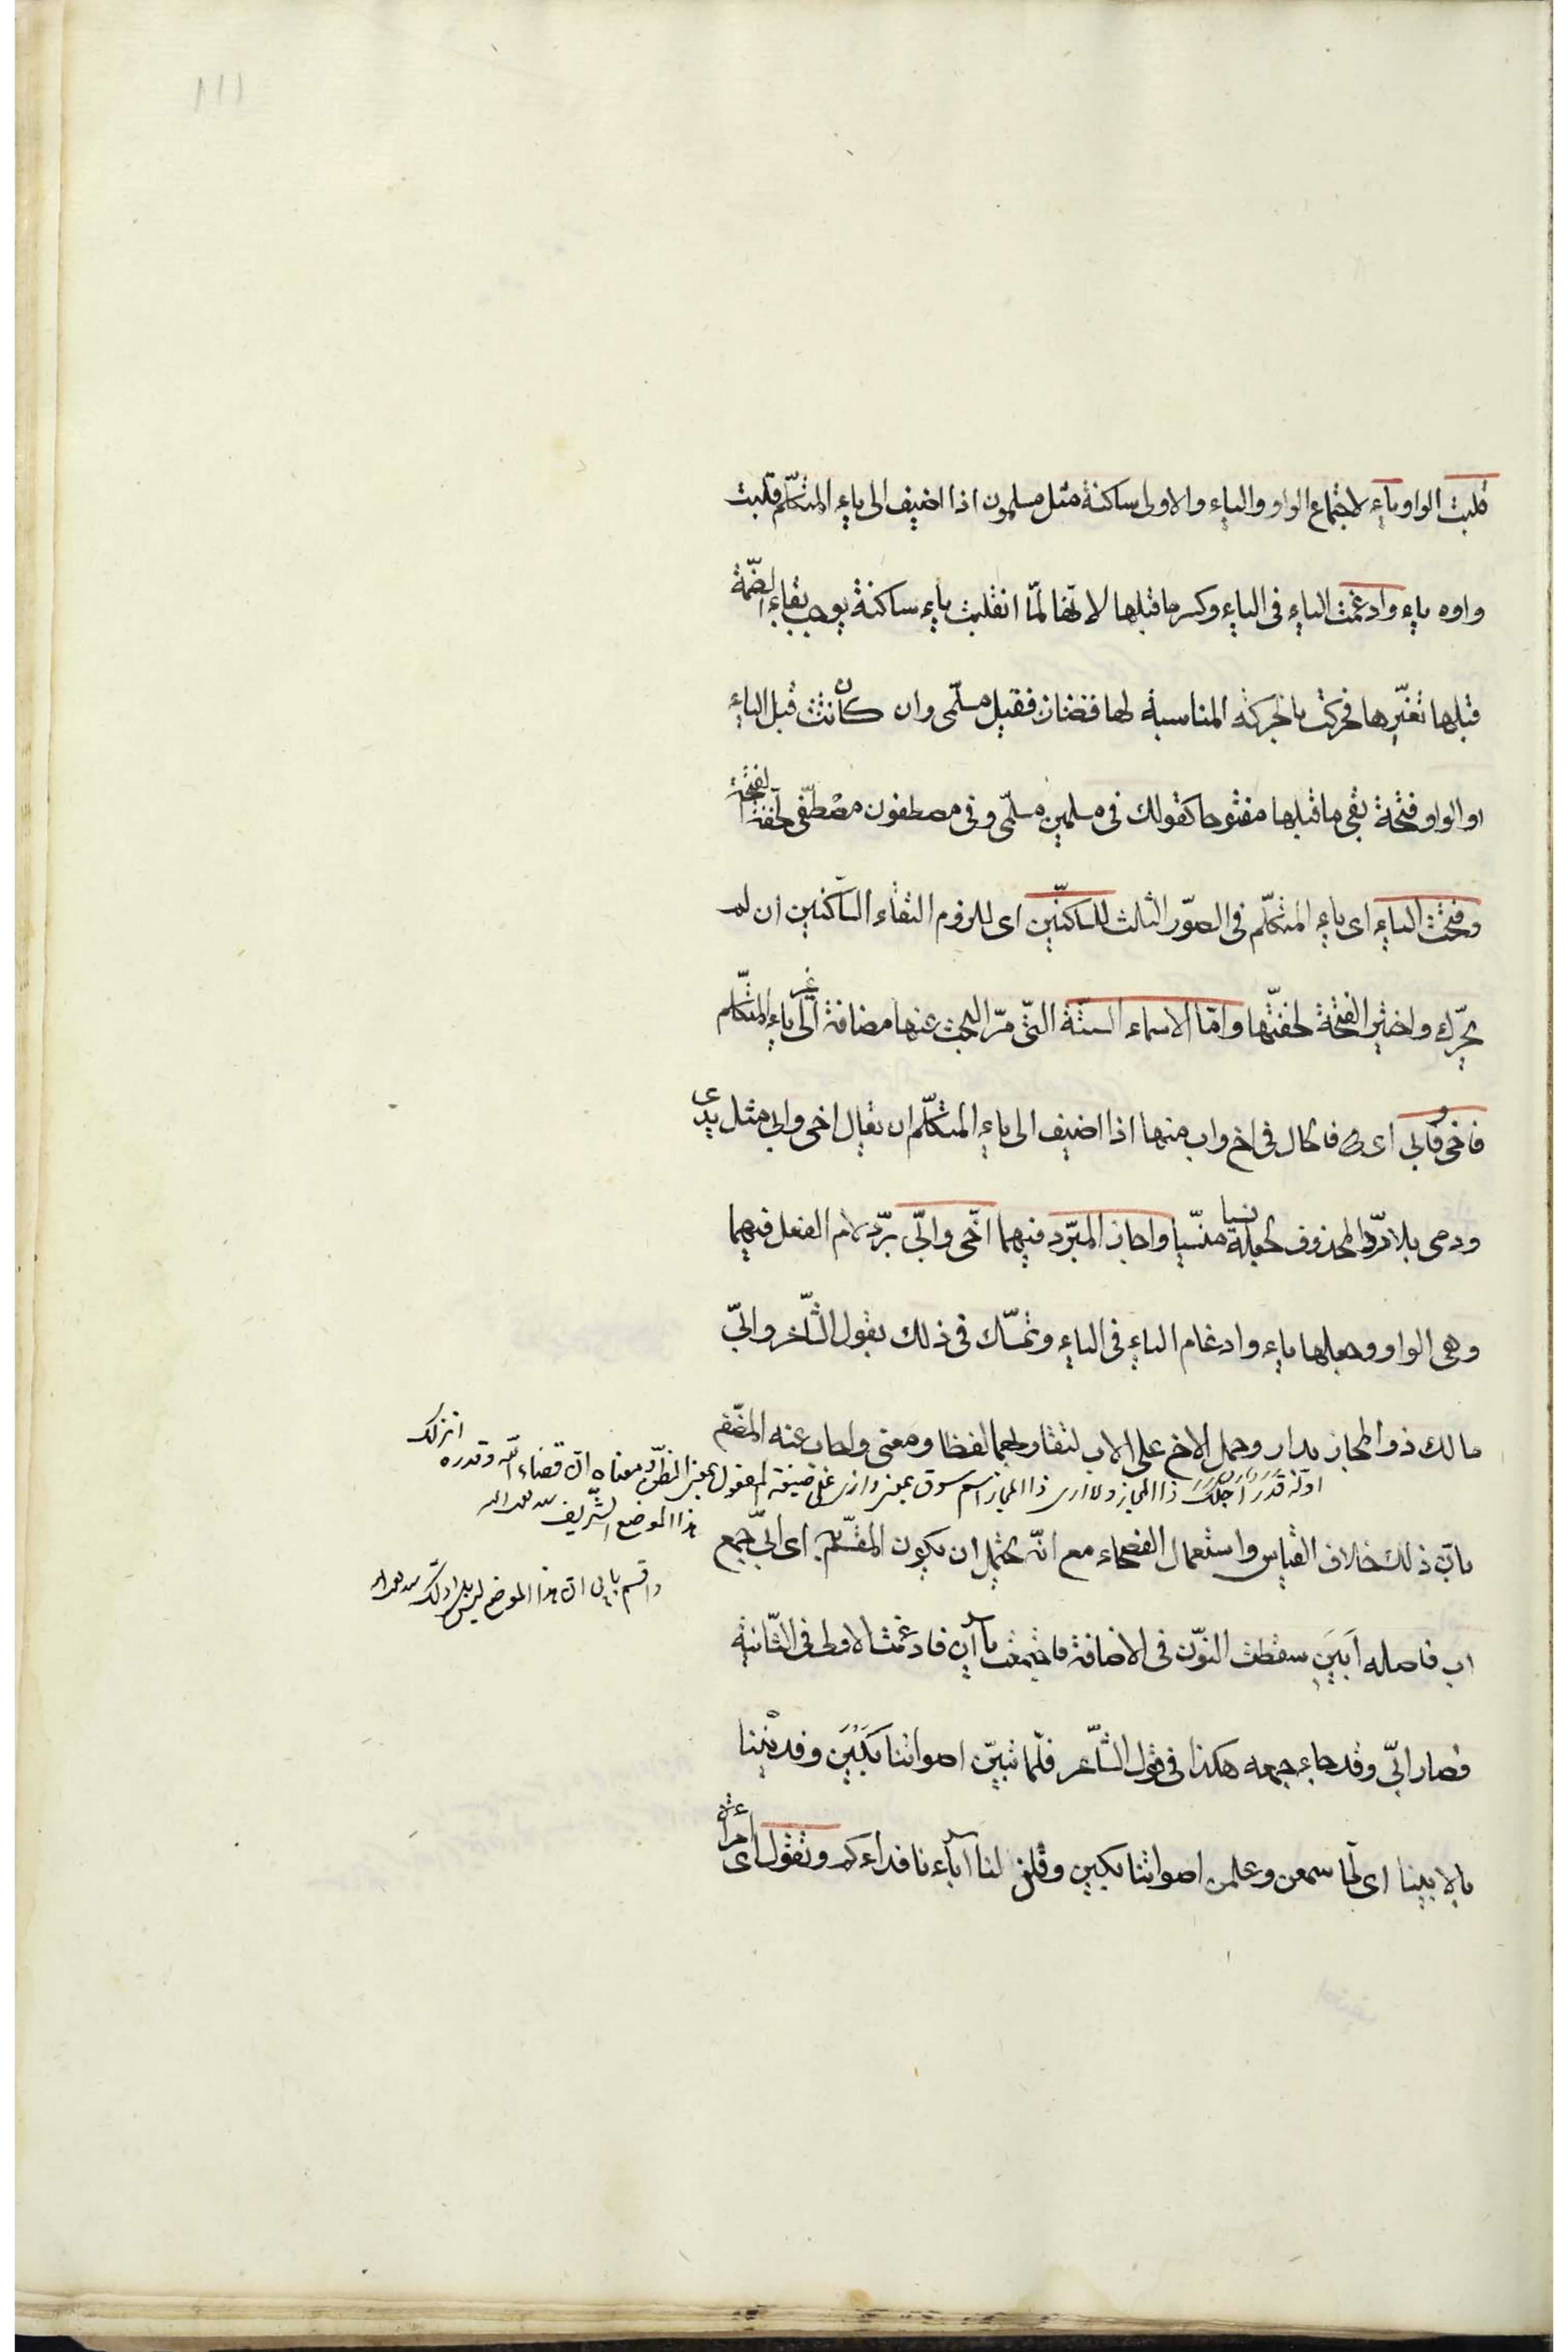 ١١١
قلبت الواو ياء لاجتماع الواو والياء والاولى ساكنة مثل مسلمون اذا اضيف الى ياء المتكلّم قلبت
واوه ياء وادغمت الياء فى الياء وكسر ما قبلها لانّها لمّا انقلبت ياء ساكنة يوجب بقاء الضمّة
قبلها تغيّرها فحركت بالحركة المناسبة لها فقيل مسلمّى وان كانت قبل الياء
او الواو فتحة بقى ما قبلها مفتوحا كقولك فى مسلمين مسلمّى وفى مصطفون مصطفّى لخفّة الفتحة
وفتحت الياء اى ياء المتكلّم فى الصّور الثلث للساكنين اى للزوم التقاء الساكنين ان لم
يحرّك واختير الفتحة لخفّتها وامّا الاسماء الستّة التى مرّ البحث عنها مضافة الى غير ياء المتكلم
فاخى وابى اى فالحال فى اخ واب منها اذا اضيف الى ياء المتكلّم ان يقال اخى وابى مثل يدى
ودمى بلا ردّ المحذوف لجعله نسيا منسيّا واجاز المبرّد فيهما اخّى وابّى بردّ لام الفعل فيهما
وهى الواو وجعلها ياء وادغام الياء فى الياء وتمسّك فى ذلك بقول الشّاعر وابىّ
مالك ذو المجاز بدار وحمل الاخ على الاب لتقاربهما لفظا ومعنى واجاب عنه المصّنف
اوله قدر احلك ذا المجاز ولا ارى ذا المجاز اسم سوق بمنى وارى على صيغة المفعول بمعنى الظنّ ومعناه ان قضاء اللّه وقدره انزلك
هذا الموضع الشّريف
واقسم بابى ان هذا الموضع ليس بدار لك
بانّ ذلك خلاف القياس واستعمال الفصحاء مع انّه يحتمل ان يكون المقسم به اى ابىّ جمع
اب فاصله اَبَيَن سقطت النّون فى الاضافة فاجتمعت ياآن فادغمت الاولى فى الثّانية
فصار ابىّ وقد جاء جمعه هكذا فى قول الشّاعر فلمّا تبيّن اصواتنا بَكَيْنَ وفدّيننا
بالابينا اى لمّا سمعن وعلمن اصواتنا بكين وقلن لنا آباءنا فداءكم وتقول اى امرأة